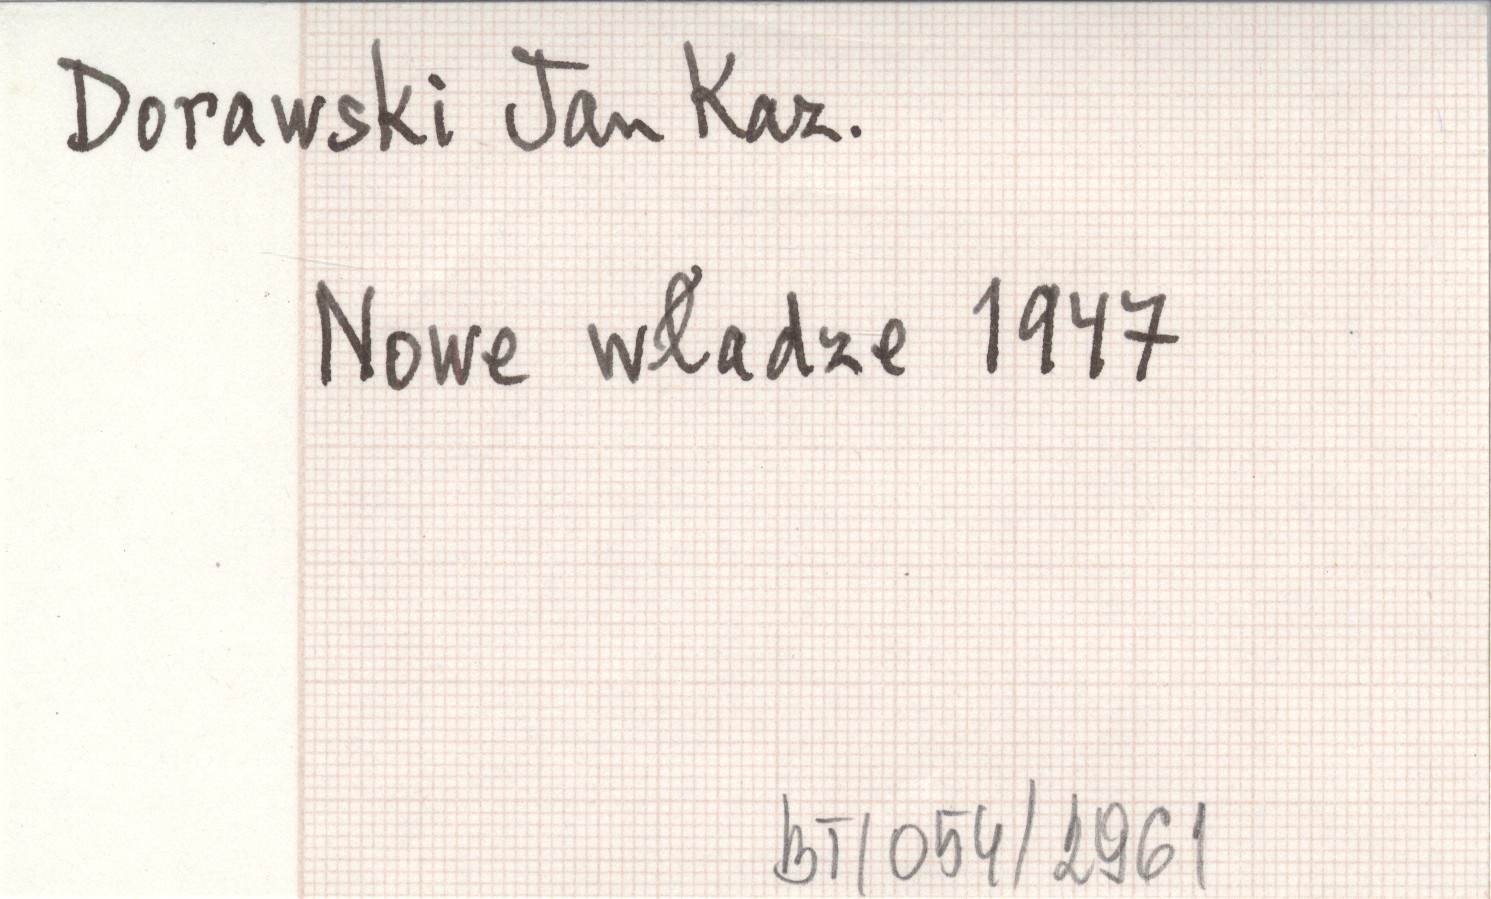 Dorawski Jan Kaz.
Nowe władze 1947
BT/054/2961